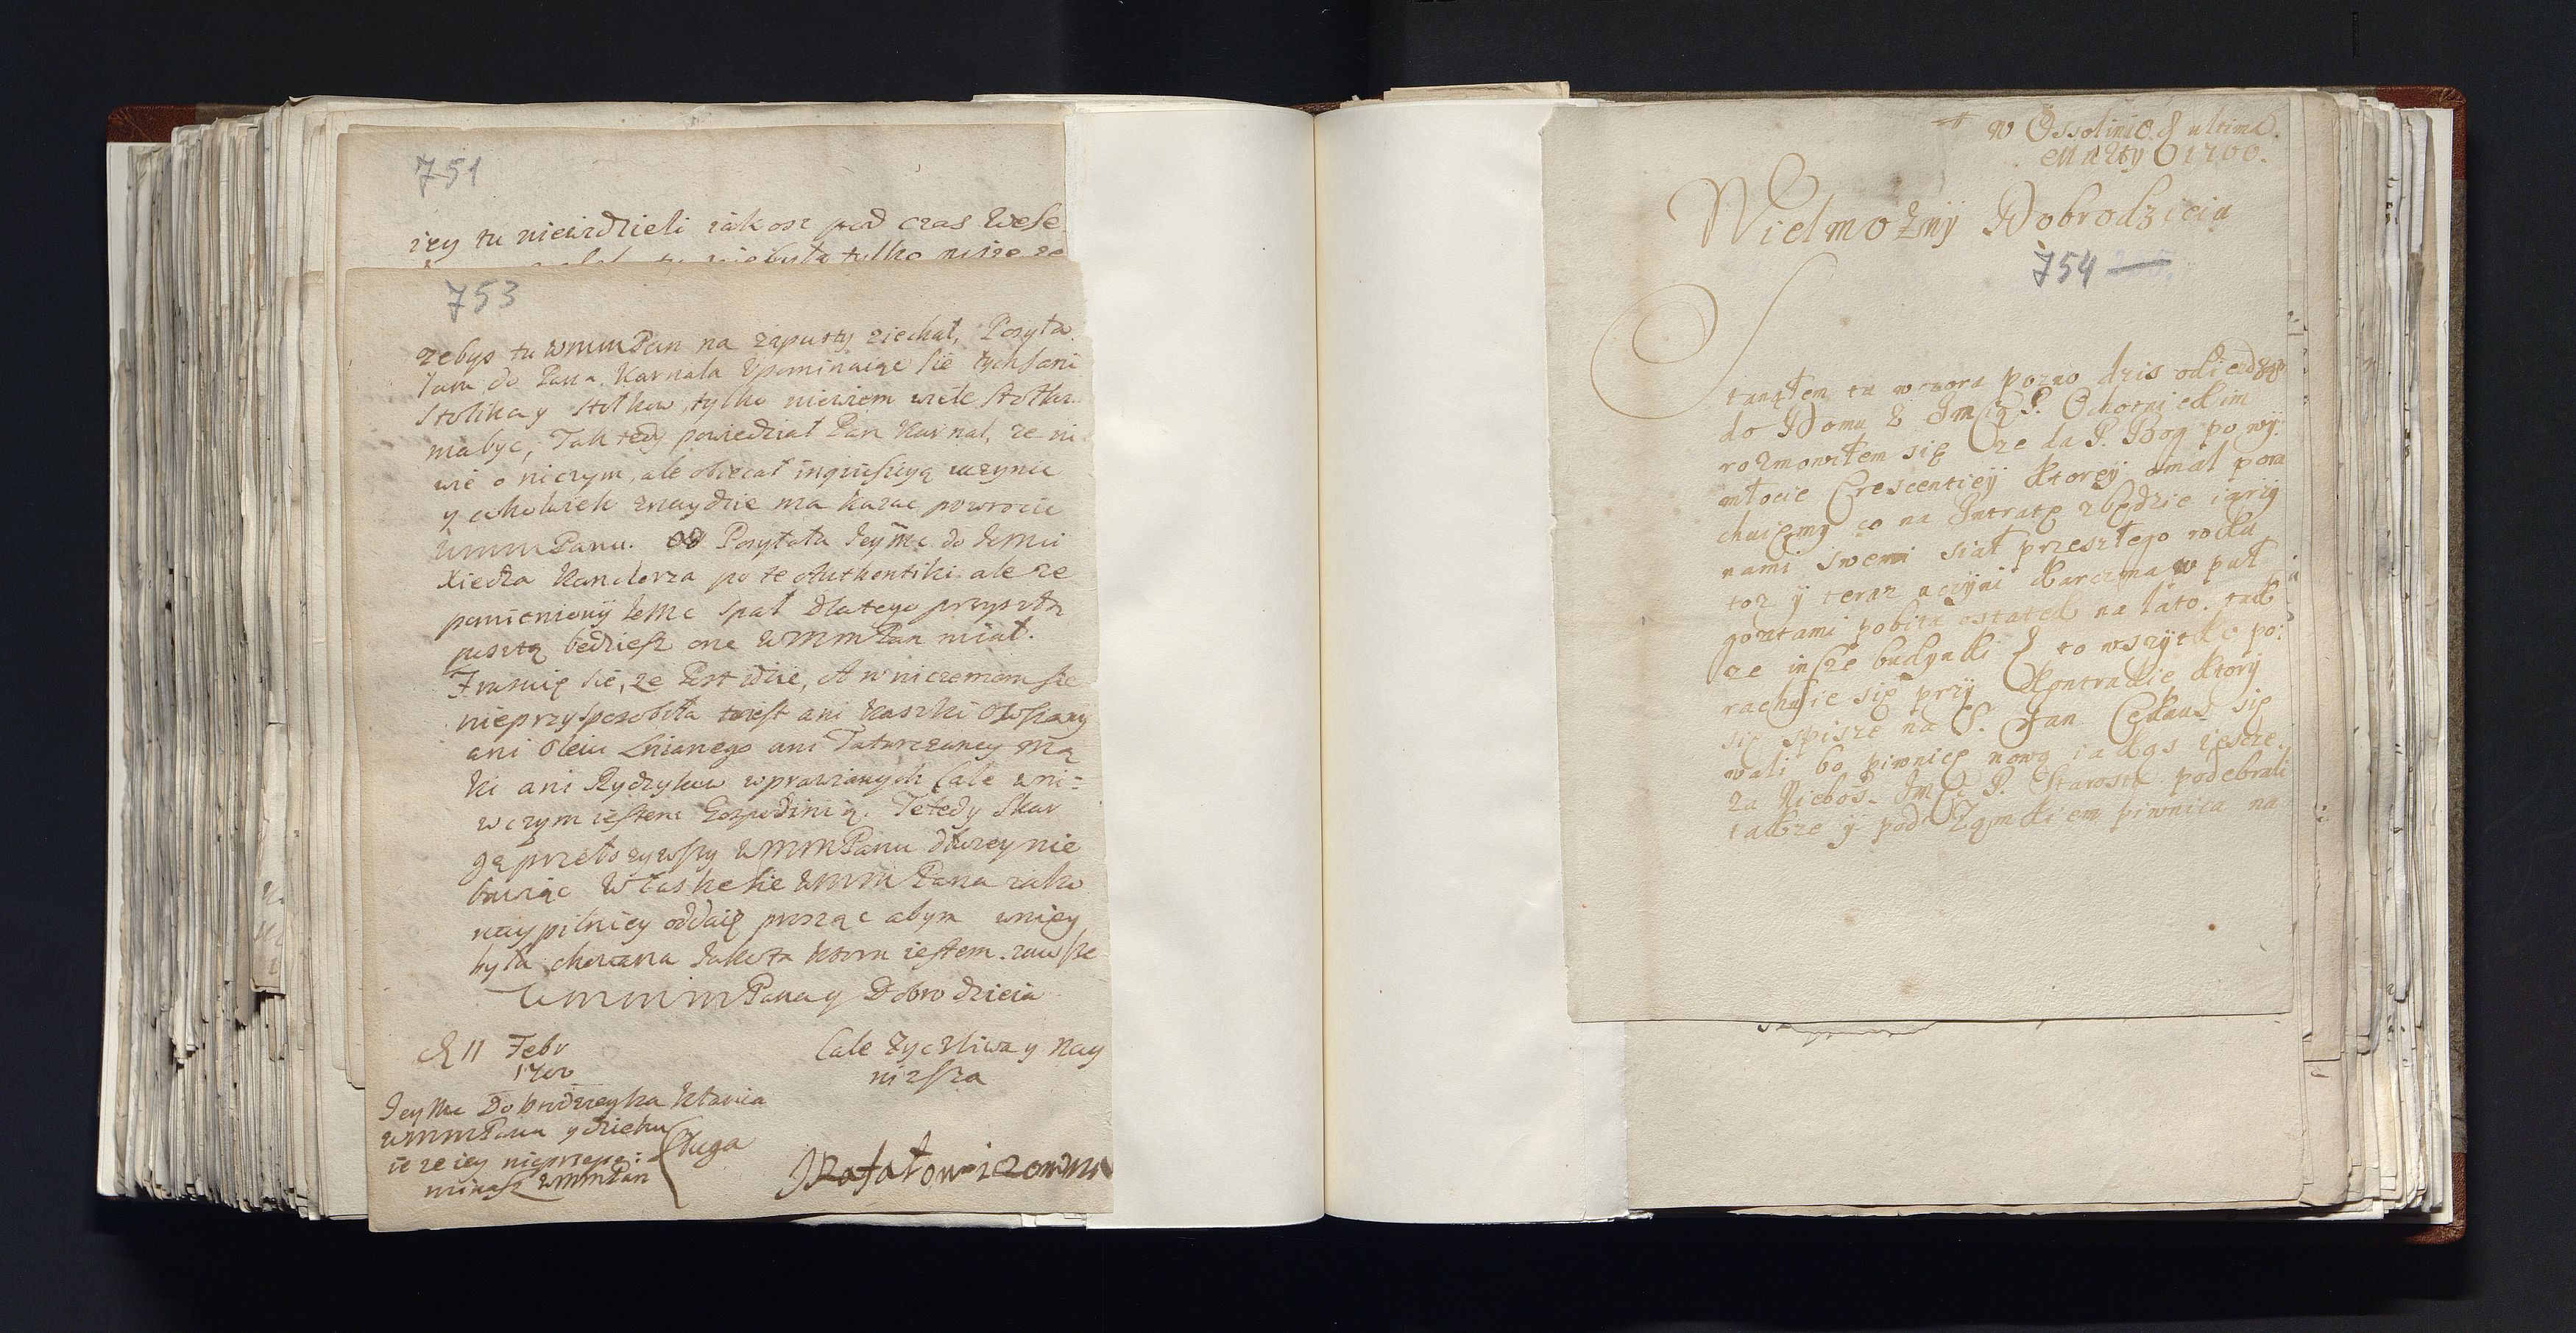 751
iey tu niewidzieli iakosz pod czas wese
753
zebys tu WMMPan na zapusty ziechał, Posyła
łam do Pana Karnała Upominaiąc sie tych sani
Stolika y stołkow, tylko niewiem wiele stołkow
ma byc, Tak tedy powiedział Pan Karnał, ze ni
wie o niczym, ale obiecał inquisicyą uczynic
y cokolwiek znaydzie ma kazac powrocic
WMMPanu. Posyłała Jeymc do Jemci
Xiedza Kanclerza po te Authentiki ale ze
pomieniony Jemc spał dlatego przyszłą
pocztą bedziesz one WMMPan miał.
Frasuię sie, ze Post idzie, A w niczemem sie
nieprzysposobiła ani Kaszki Owsianny
ani Oleiu Lnianego ani Tatarczaney Mą
ki ani Rydzykow wprawianych Cale w ni=
wczym iestem Gospodinią. Te tedy Skar
gę przełozywszy WMMPanu dłuzey nie
bawiąc W łaske sie WMM Pana iako
naypilniey oddaię prosząc abym w niey
była chowana Jako ta ktora iestem zawsze
WMMMPana y Dobrodzicia
D 11 Febr
1700
Cale Zyczliwa y nay
nizsza
Jeymc Dobrodzieyka kłania
WMMPanu y dziekuie
ze iey nieprzepo:
minasz WMMPan
Sługa
Rafałowiczowna
w Ossolinie d ultima
Marty 1700.
Wielmozny Dobrodzieiu
754
Stanąłem tu wczora pozno dzis odiezdzam
do Domu z Jmcią P. Ochotnickim
rozmowiłem się ze da P. Bog po wy
młocie Crescentiey ktorey omal pora
chuięmy co na Intratę zbędzie iarzy
nami swemi siał przeszłego rocku
toz y teraz uczyni karczma w puł
gontami pobita ostatek na lato. tak
ze insze budynki to wszytko po:
rachuie się przy Kontrakcie ktory
się spisze na S. Jan
wali bo piwnicę nową iakąs ieszcze
za Niebos. Jmci P. Starosta podebrali
takze y pod Zamkiem piwnica na